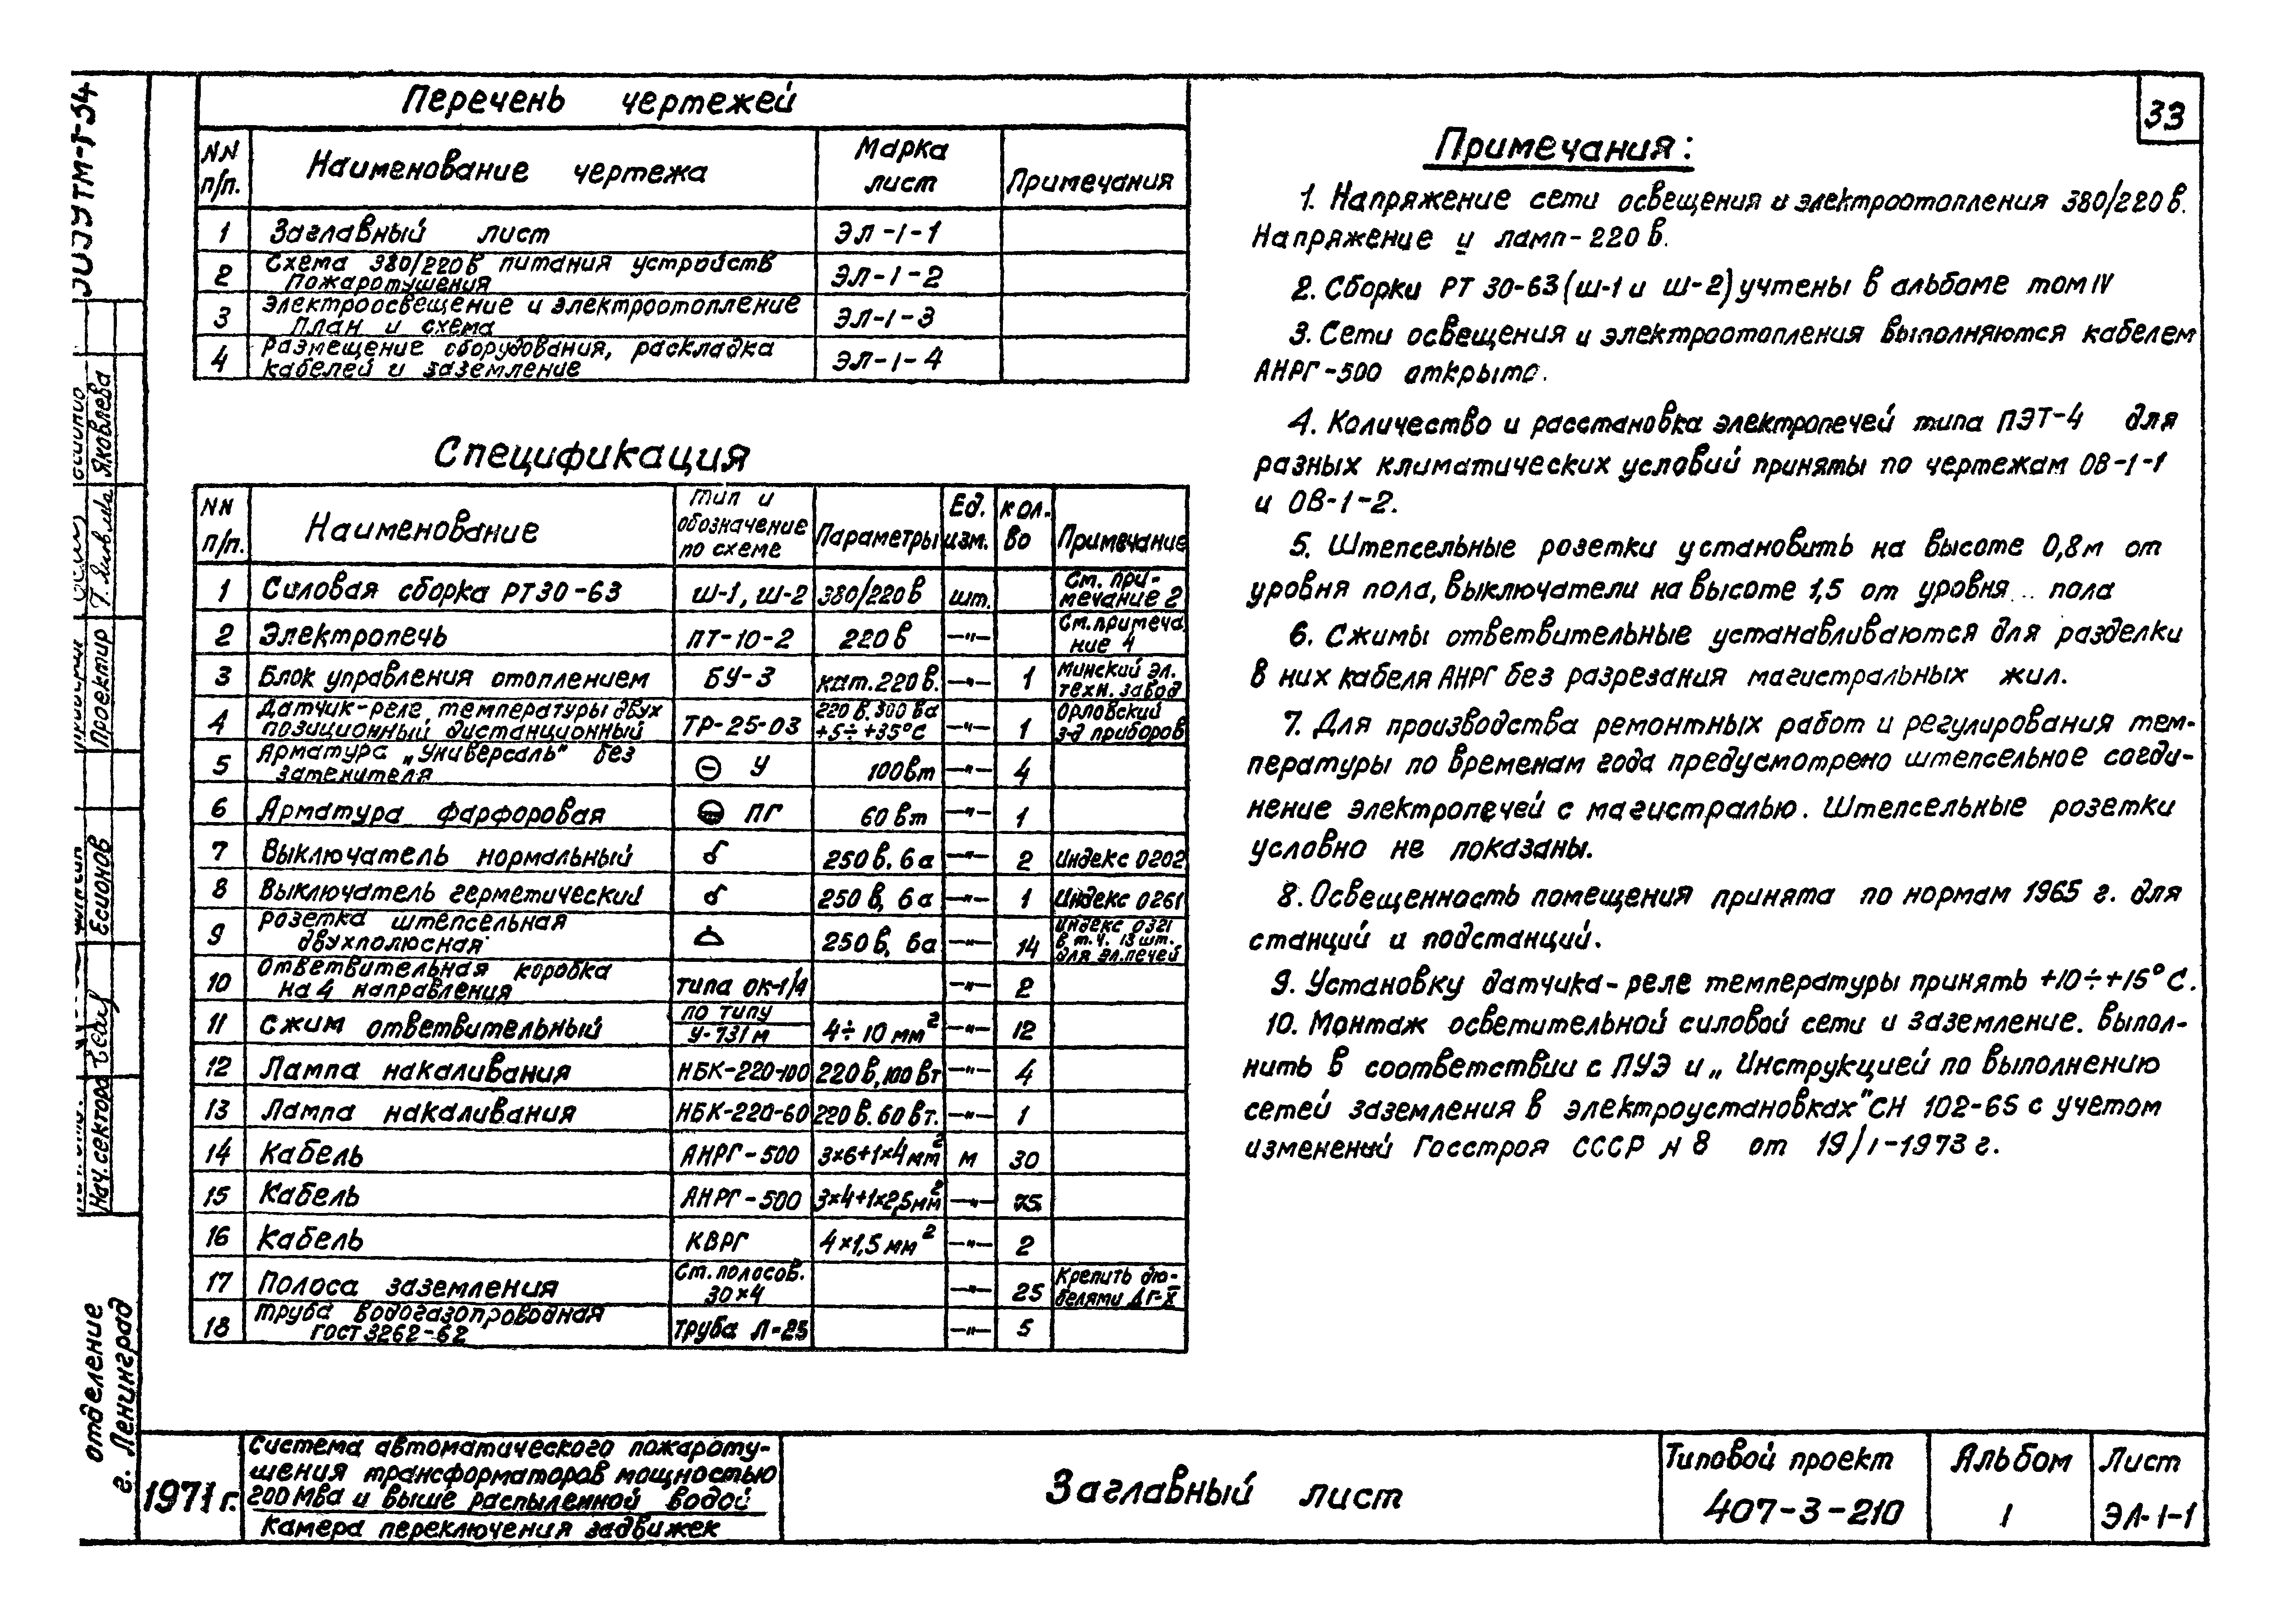 33
Перечень чертежей
NN п/п. Наименование чертежа Марка лист Примечания
1 Заглавный лист ЭЛ-1-1
2 Схема 380/220в питания устройств пожаротушения ЭЛ-1-2
3 Электроосвещение и электроотопление план и схема ЭЛ-1-3
4 Размещение оборудования, раскладка кабелей и заземление ЭЛ-1-4
Спецификация
NN п/п. Наименование Тип и обозначение по схеме Параметры Ед. изм. Кол-во Примечание
1 Силовая сборка РТ30-63 Ш-1, Ш-2 380/220в шт. См. примечание 2
2 Электропечь ПТ-10-2 220в —"— См. примечание 4
3 Блок управления отоплением БУ-3 кат. 220в. —"— 1 Минский эл. техн. завод
4 Датчик-реле температуры двух позиционный дистанционный ТР-25-03 220в. 300ва +5÷+35°С —"— 1 Орловский з-д приборов
5 Арматура „Универсаль" без затенителя У 100вт —"— 4
6 Арматура фарфоровая ПГ 60вт —"— 1
7 Выключатель нормальный 250в. 6а —"— 2 Индекс 0202
8 Выключатель герметический 250в, 6а —"— 1 Индекс 0261
9 Розетка штепсельная двухполюсная 250в, 6а —"— 14 Индекс 0321 в т.ч. 13 шт. для эл.печей
10 Ответвительная коробка на 4 направления типа ОК-1/4 —"— 2
11 Сжим ответвительный по типу У-731м 4÷10 мм² —"— 12
12 Лампа накаливания НБК-220-100 220в, 100вт —"— 4
13 Лампа накаливания НБК-220-60 220в. 60вт. —"— 1
14 Кабель АНРГ-500 3×6+1×4мм² м 30
15 Кабель АНРГ-500 3×4+1×2,5мм² —"— 75
16 Кабель КВРГ 4×1,5мм² —"— 2
17 Полоса заземления Ст. полосов. 30×4 —"— 25 Крепить дюбелями ДГ-X
18 Труба водогазопроводная ГОСТ 3262-62 Труба Л-25 —"— 5
Примечания:
1. Напряжение сети освещения и электроотопления 380/220в.
Напряжение у ламп-220в.
2. Сборки РТ 30-63 (Ш-1 и Ш-2) учтены в альбоме том IV
3. Сети освещения и электроотопления выполняются кабелем
АНРГ-500 открыто.
4. Количество и расстановка электропечей типа ПЭТ-4 для
разных климатических условий приняты по чертежам ОВ-1-1
и ОВ-1-2.
5. Штепсельные розетки установить на высоте 0,8м от
уровня пола, выключатели на высоте 1,5 от уровня пола
6. Сжимы ответвительные устанавливаются для разделки
в них кабеля АНРГ без разрезания магистральных жил.
7. Для производства ремонтных работ и регулирования тем-
пературы по временам года предусмотрено штепсельное соеди-
нение электропечей с магистралью. Штепсельные розетки
условно не показаны.
8. Освещенность помещения принята по нормам 1965 г. для
станций и подстанций.
9. Установку датчика-реле температуры принять +10÷+15°С.
10. Монтаж осветительной силовой сети и заземление. выпол-
нить в соответствии с ПУЭ и „Инструкцией по выполнению
сетей заземления в электроустановках" СН 102-65 с учетом
изменений Госстроя СССР N 8 от 19/I-1973г.
Яковлева
Проектир
Есионов
Нач.сектора
отделение
г. Ленинград
1971г.
Система автоматического пожароту-
шения трансформаторов мощностью
200 Мва и выше распыленной водой
Камера переключения задвижек
Заглавный лист
Типовой проект
407-3-210
Альбом
1
Лист
ЭЛ-1-1